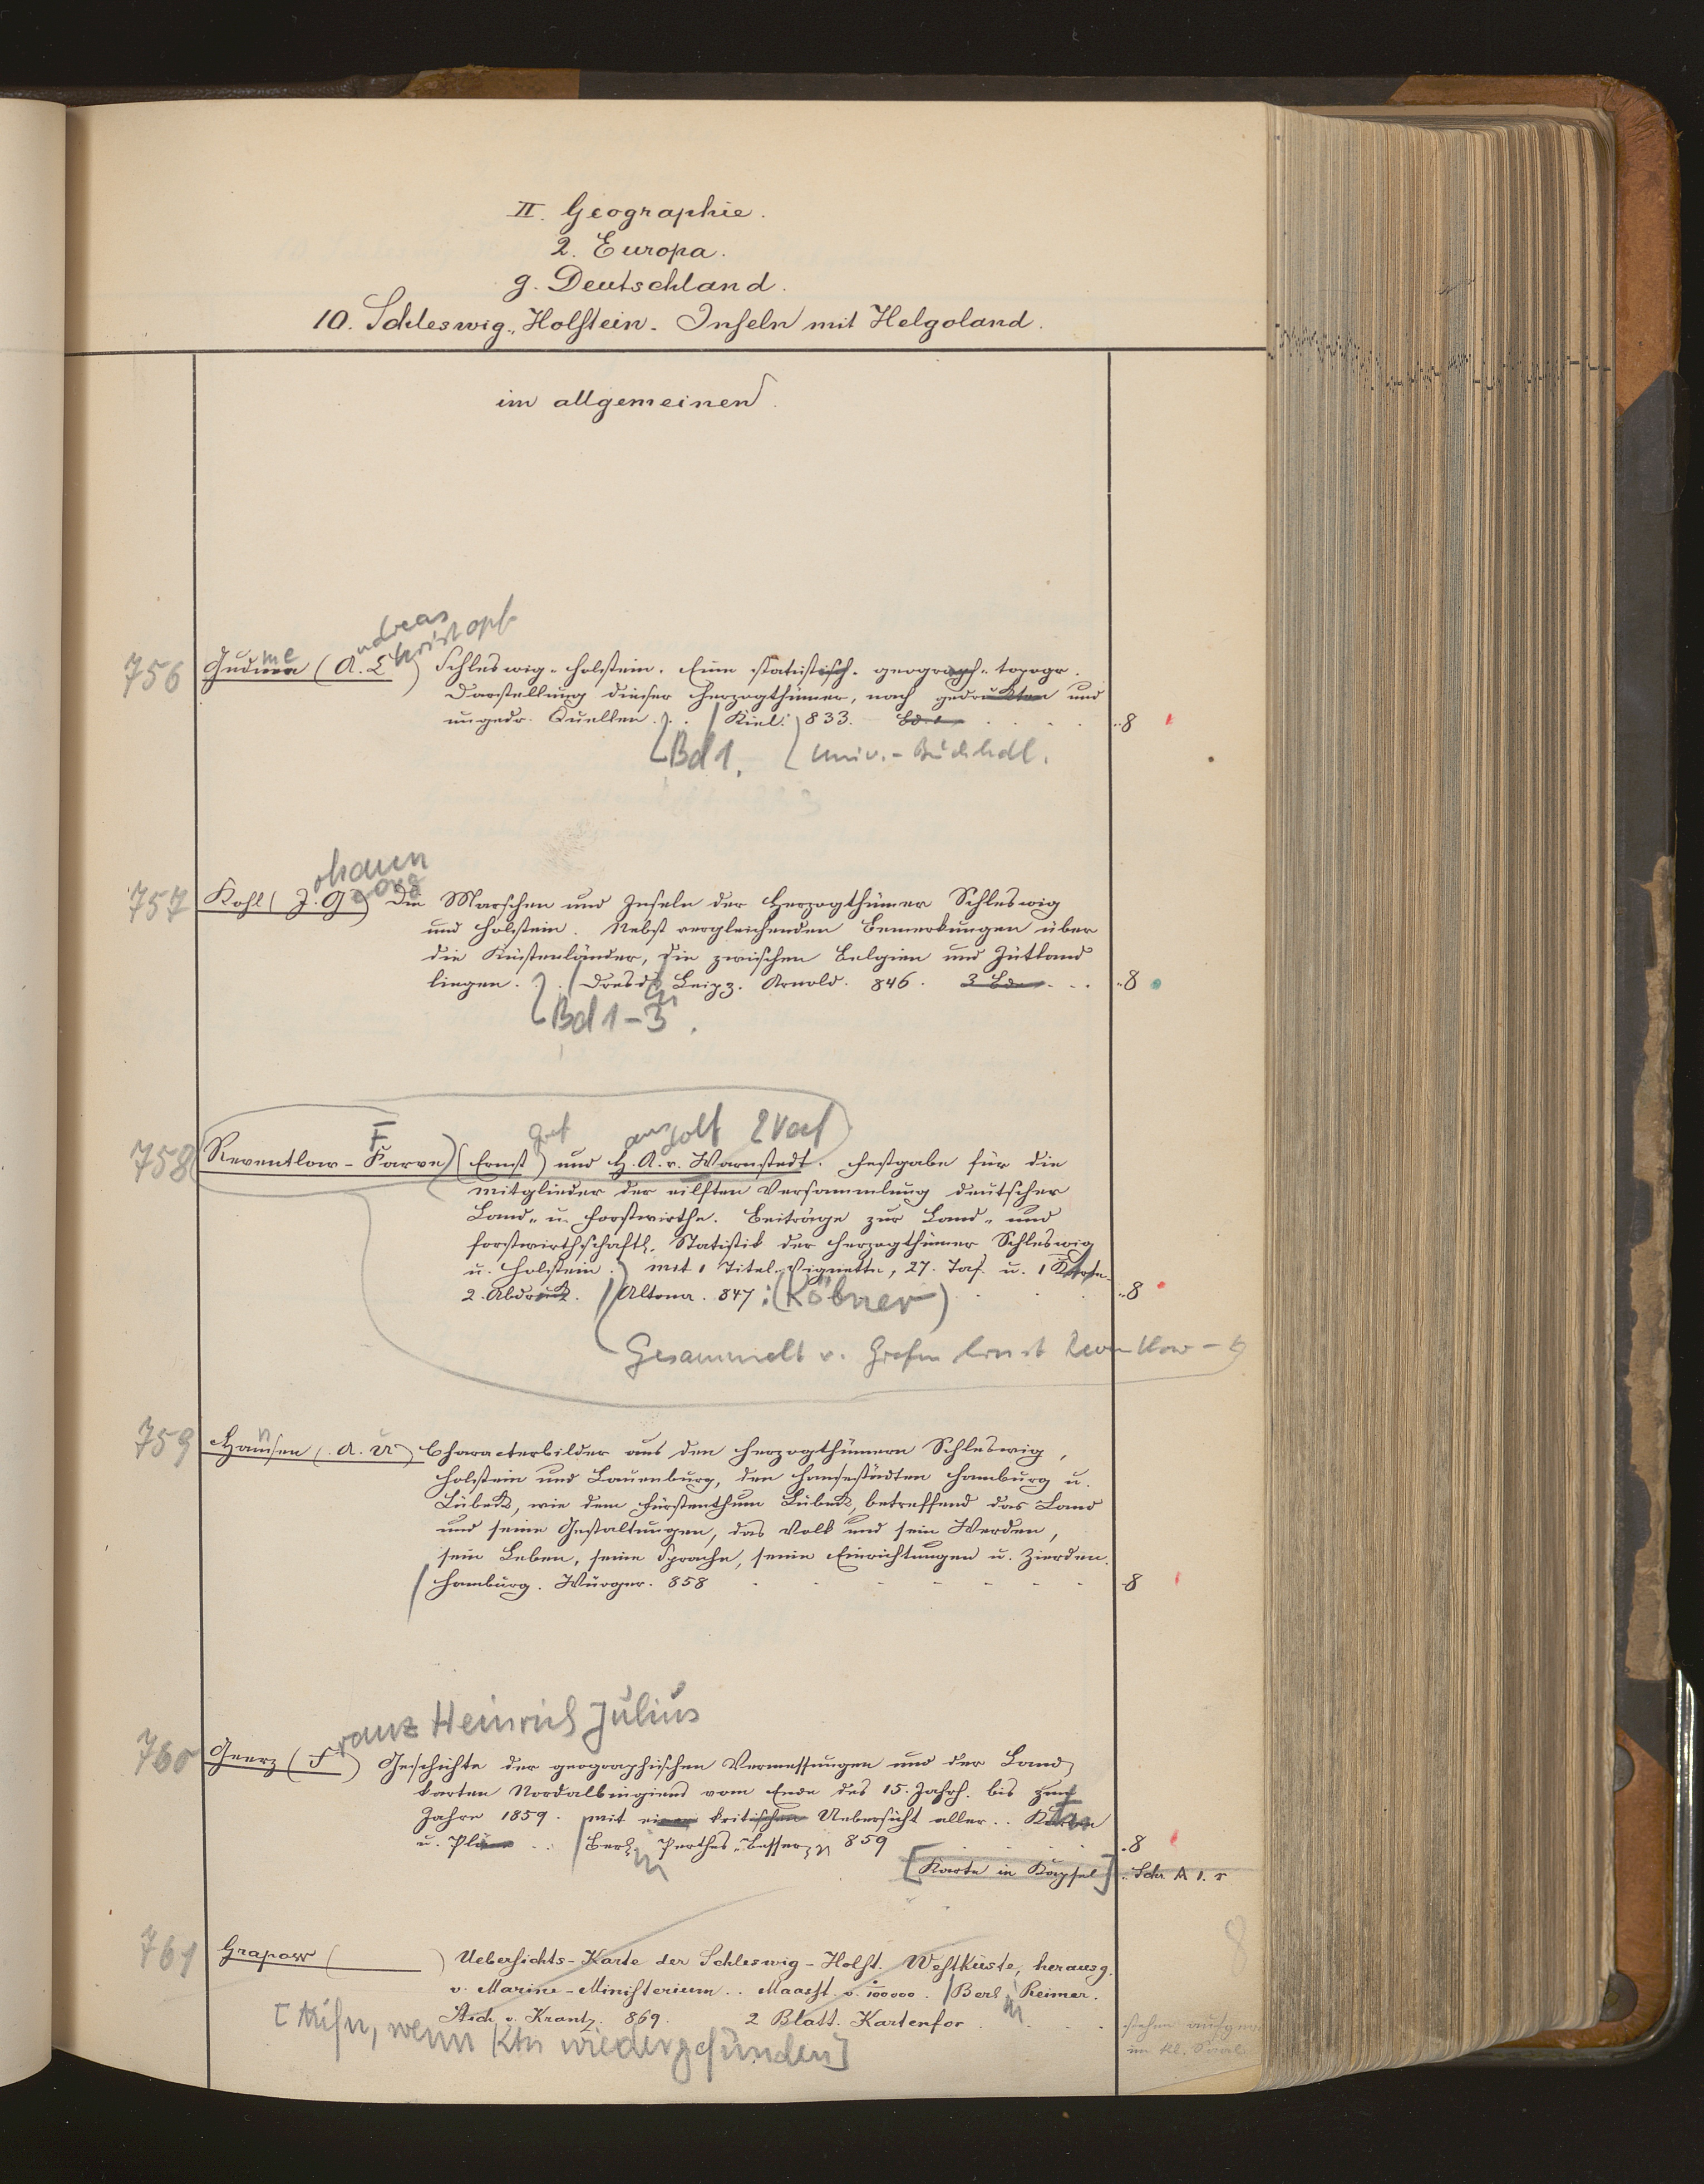 II. Geographie.
2. Europa.
g. Deutschland.
10. Schleswig-Holstein. Inseln mit Helgoland.
im allgemeinen
ndreas
hristoph
me
756 Gudme (A. C ) Schleswig-Holstein. Eine statistisch-geograph.-topogr.
Darstellung dieser Herzogthümer, nach gedruckten und
ungedr. Quellen. Kiel: 833. Bd. 1 8
Bd 1. Univ.-Buchhdl.
ohann
eorg
757 Kohl (J. G ) Die Marschen und Inseln der Herzogthümer Schleswig
und Holstein. Nebst vergleichenden Bemerkungen über
die Küstenländer, die zwischen Belgien und Jütland
liegen. Dresd. Leipz. Arnold. 846. 3 Bde 8
Bd 1-3.
F Graf ans dolf 2 Verf
758 Reventlow-Farve (Ernst) und H. A. v. Warnstedt. Festgabe für die
Mitglieder der eilften Versammlung deutscher
Land- u. Forstwirthe. Beiträge zur Land- und
forstwirthschaftl. Statistik der Herzogthümer Schleswig
u. Holstein. Mit 1 Titel-Vignette, 27. Taf. u. 1 Karte.
2. Abdruck. Altona. 847: (Köbner) 8
Gesammelt v. Grafen Ernst Reventlow-
n
759 Hansen (A. U) Characterbilder aus den Herzogthümern Schleswig,
Holstein und Lauenburg, den Hansestädten Hamburg u.
Lübeck, wie dem Fürstenthum Lübeck, betreffend das Land
und seine Gestaltungen, das Volk und sein Werden,
sein Leben, seine Sprache, seine Einrichtungen u. Zierden.
Hamburg. Würger. 858 8
ranz Heinrich Julius
760 Geerz (F ) Geschichte der geographischen Vermessungen und der Land
karten Nordalbingiens vom Ende des 15. Jahrh. bis zum
Jahre 1859. Mit einer kritischen Uebersicht aller.. Karten
u. Pläne .. Berl. Perthes-Besser 859 8
[Karte in Kapsel] Schr. A 1. r
8
761 Grapow ( ) Uebersichts-Karte der Schleswig-Holst. Westküste, herausg.
v. Marine-Ministerium.. Maasst. v. 100000. Berl Reimer.
Stich v. Krantz. 869. 2 Blatt. Kartenfor
[Aufn, wenn Ktn wiedergefunden]
stehen
im kl. Saal.